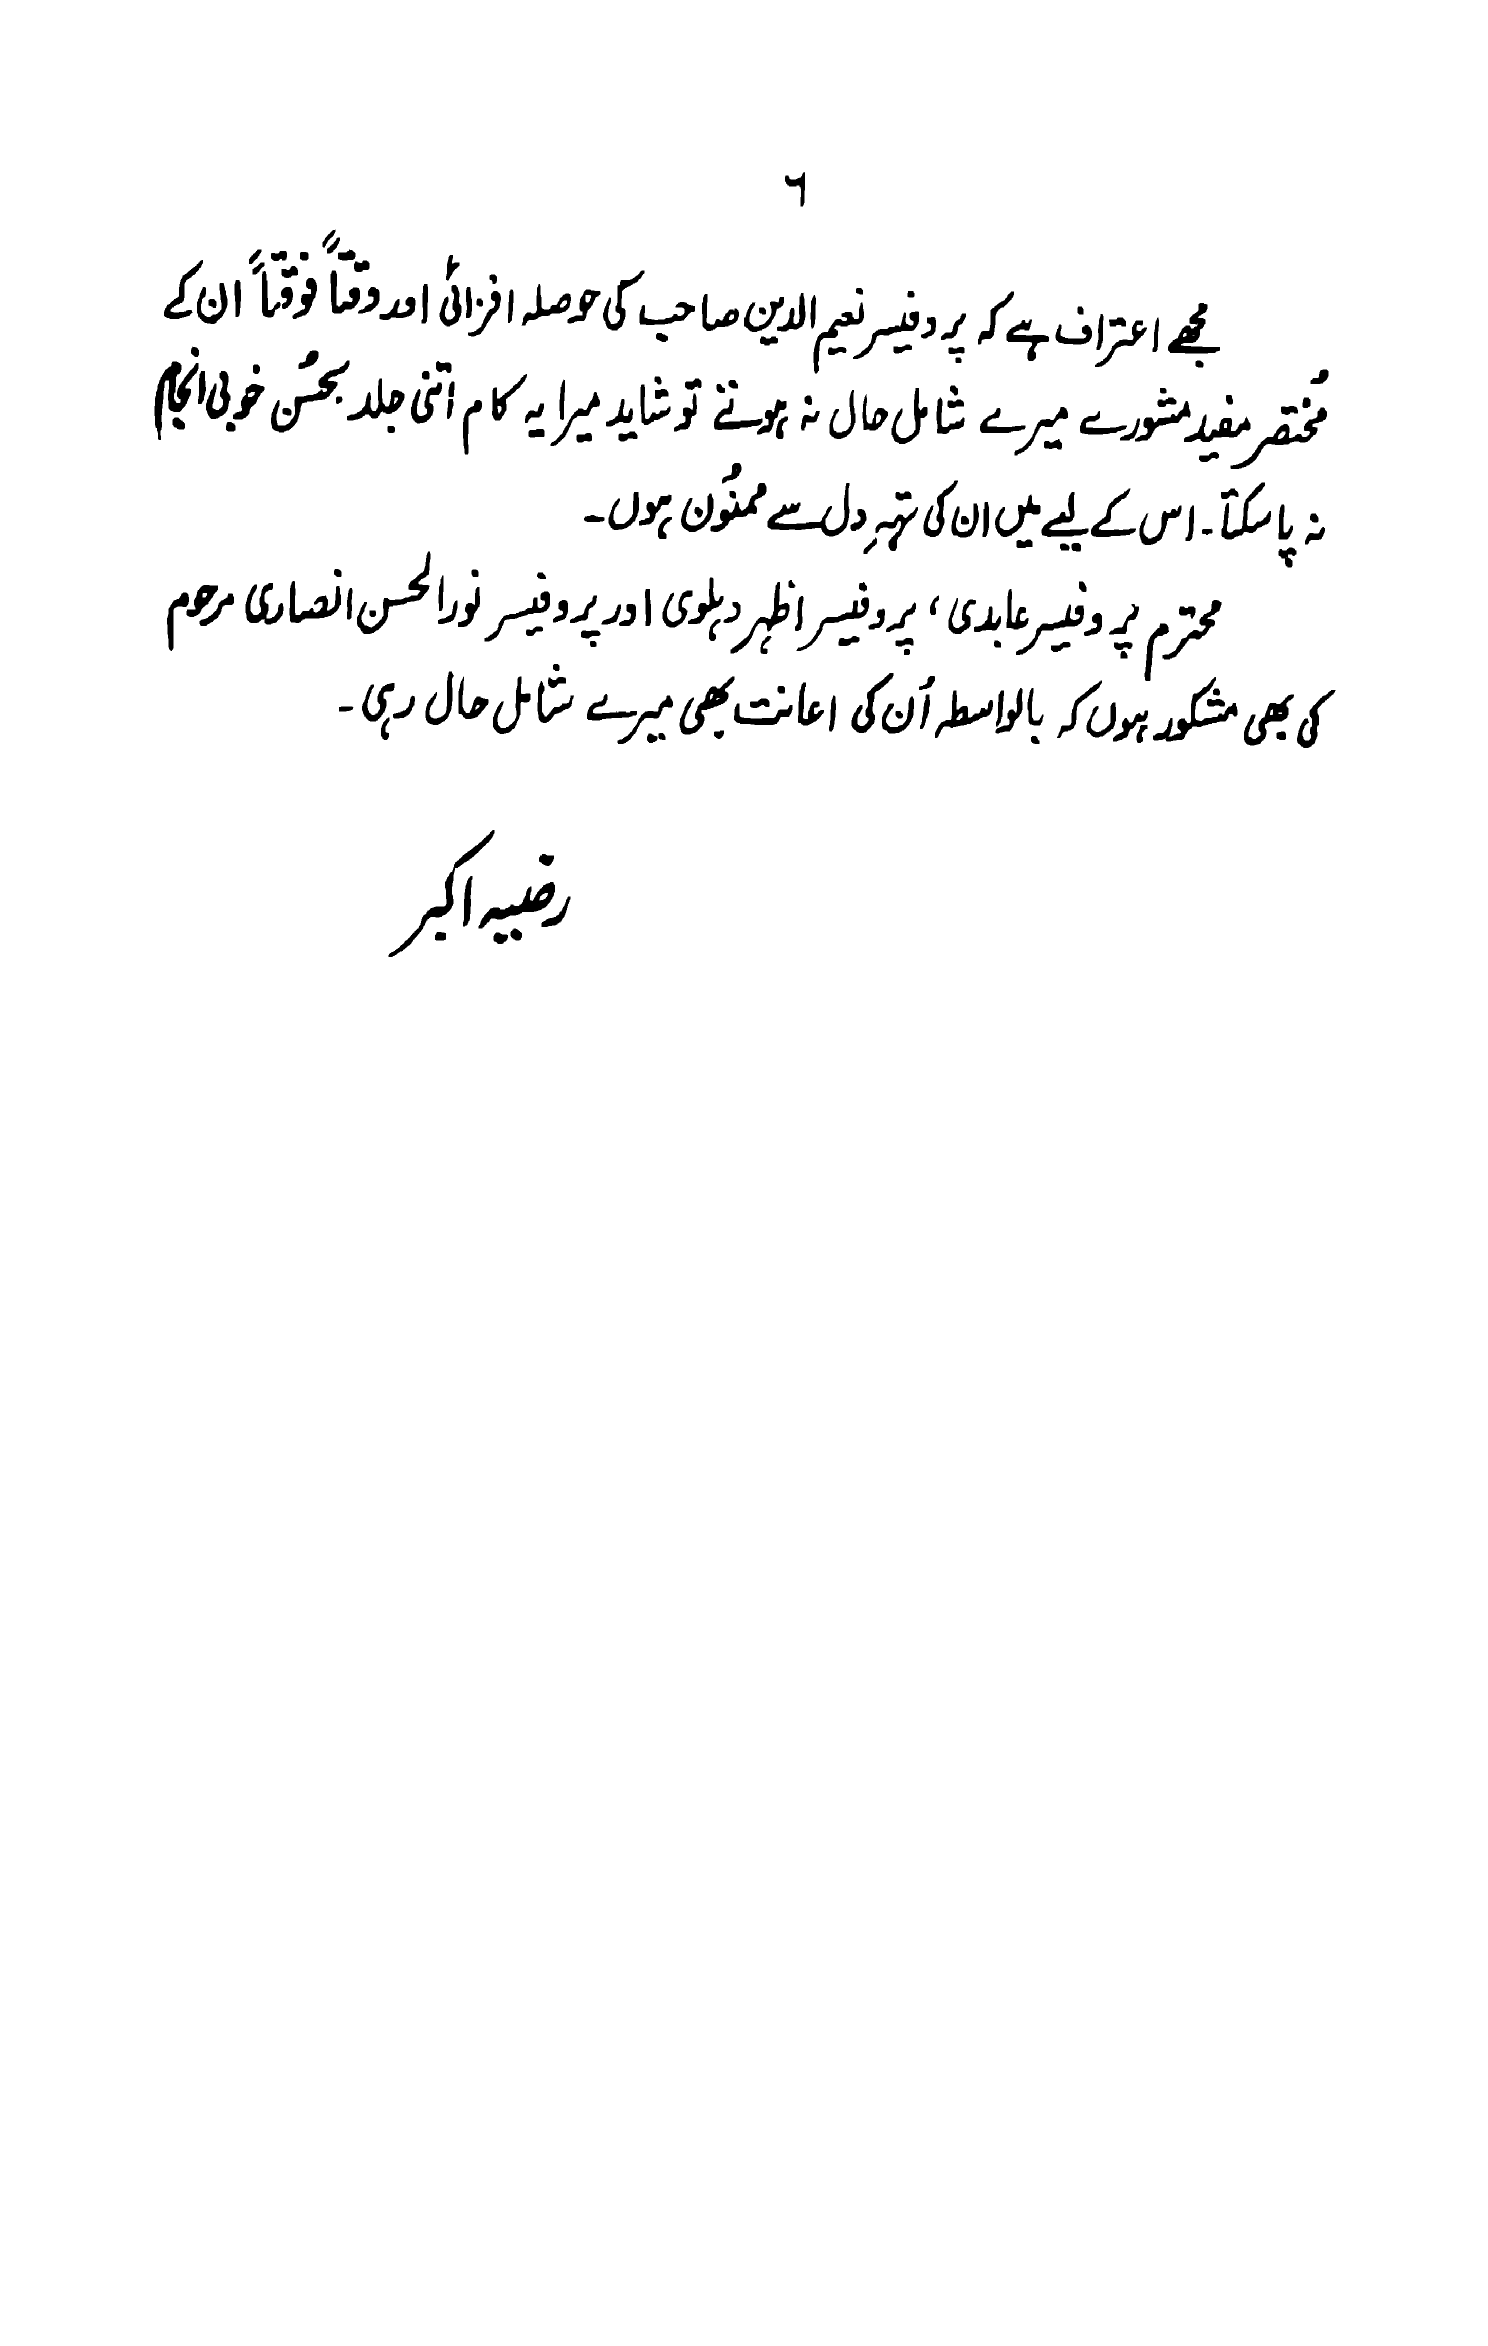 ۶
مجھے اعتراف ہے کہ پروفیسر نعیم الدین صاحب کی حوصلہ افزائی اور وقتاً فوقتاً ان کے
مُختصر مفید مشورے میرے شامل حال نہ ہوتے تو شاید میرا یہ کام اتنی جلد بحسُن خوبی انجام
نہ پا سکتا۔ اس کے لیے میں ان کی تہہِ دل سے ممنُون ہوں۔
محترم پروفیسر عابدی، پروفیسر اظہر دہلوی اور پروفیسر نورالحسن انصاری مرحوم
کی بھی مشکور ہوں کہ بالواسطہ اُن کی اعانت بھی میرے شامل حال رہی۔
رضیہ اکبر